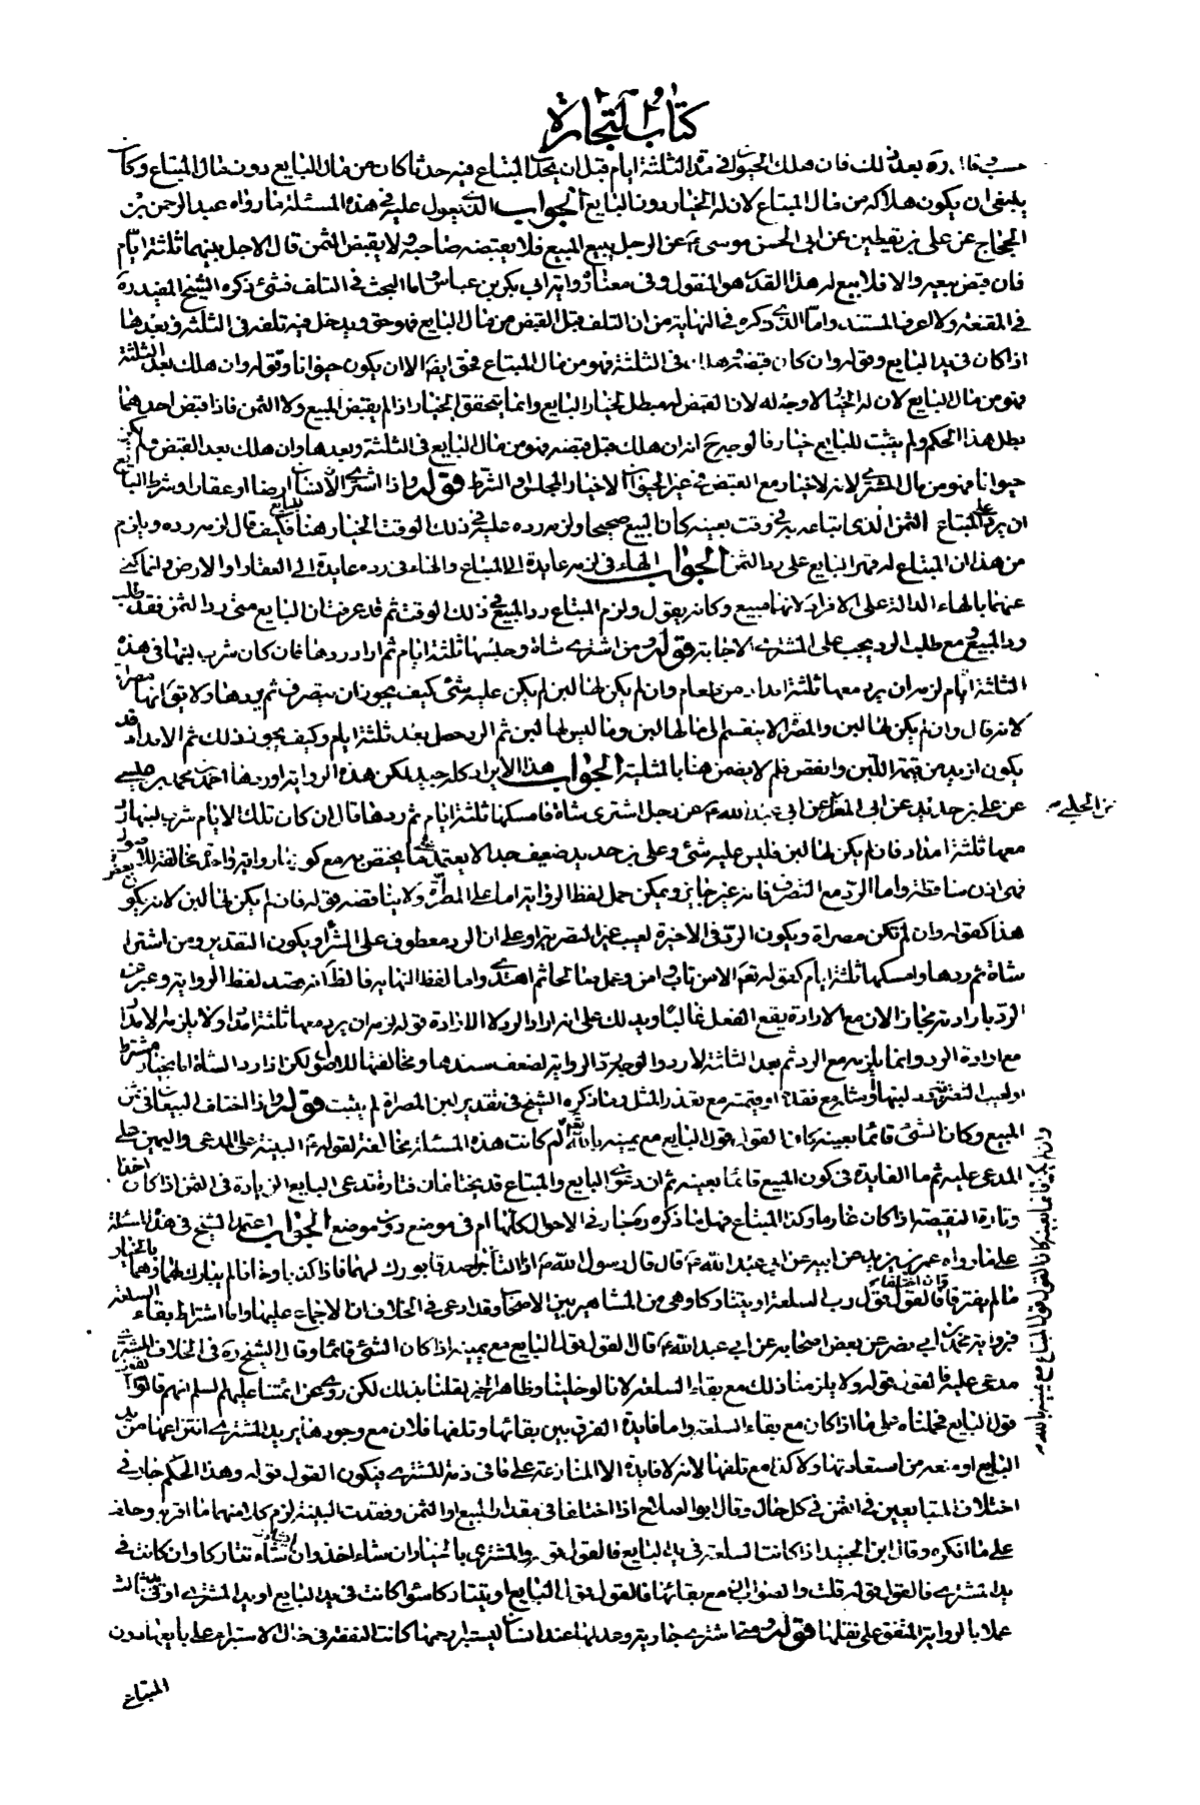 كتاب التجارة
بعد ذلك فان هلك الحيوان في مدة الثلثة ايام قبل ان يحدث المبتاع فيه حدثا كان من مال البايع دون مال المبتاع وكان
ينبغي ان يكون هلاكه من مال المبتاع لان له الخيار دون البايع الجواب الذي نعول عليه في هذه المسئلة ما رواه عبد الرحمن بن
الحجاج عن علي بن يقطين عن ابي الحسن موسى ع عن الرجل يبيع المبيع فلا يقبضه صاحبه ولا يقبض الثمن قال الاجل بينهما ثلثة ايام
فان قبض بيعه والا فلا بيع له هذا القدر هو المنقول وفي معناه رواية ابي بكر بن عياش واما البحث في التلف فشئ ذكره الشيخ المفيد ره
في المقنعة ولا اعرف المستند واما الذي ذكره في النهاية من ان التلف قبل القبض من مال البايع فهو حق ويدخل فيه تلفه في الثلثة وبعدها
اذا كان في يد البايع وقوله وان كان قبضه في الثلثة فهو من مال المبتاع فحق ايضا الا ان يكون حيوانا وقوله وان هلك بعد الثلثة
فهو من مال البايع لان له الخيار لا وجه له لان القبض له مبطل لخيار البايع وانما يتحقق الخيار اذا لم يقبض المبيع ولا الثمن فاذا قبض احدهما
بطل هذا الحكم ولم يثبت للبايع خيار فالوجه ح انه ان هلك قبل قبضه فهو من مال البايع في الثلثة وبعدها وان هلك بعد القبض ولم يكن
حيوانا فهو من مال المشتري لانه لا خيار مع القبض في غير الحيوان الا خيار المجلس او الشرط قوله واذا اشترى الانسان ارضا او عقارا وشرط البايع
ان يرد على المبتاع الثمن الذي ابتاعه به في وقت بعينه كان البيع صحيحا ولزمه رده عليه في ذلك الوقت الخيار هنا للبايع فكيف قال لزمه رده ويلزم
من هذا ان المبتاع له قهر البايع على رد الثمن الجواب الهاء في لزمه عايدة الى المبتاع والهاء في رده عايدة الى العقار او الارض وانما كنى
عنهما بالهاء الدالة على الافراد لانهما مبيع وكانه يقول ولزم المبتاع رد المبيع في ذلك الوقت ثم قد عرفت ان البايع متى رد الثمن فقد طلب
رد المبيع ومع طلب الرد يجب على المشتري الاجابة قوله ومن اشترى شاة وحبسها ثلثة ايام ثم اراد ردها فان كان شرب لبنها في هذه
الثلثة ايام لزمه ان يرد معها ثلثة امداد من طعام وان لم يكن لها لبن لم يكن عليه شئ كيف يجوز ان يتصرف ثم يردها ولا يق انها مصراة
لانه قال وان لم يكن لها لبن والمصراة لا ينقسم الى ما لها لبن وما ليس لها لبن ثم الرد حصل بعد ثلثة ايام وكيف يجوز ذلك ثم الامداد قد
يكون ازيد من قيمة اللبن وانقص فلم لا يضمن هنا بالمثلية الجواب هذا الايراد كله جيد لكن هذه الرواية اوردها احمد بن محمد بن عيسى
عن علي بن حديد عن ابي المغرا عن ابي عبد الله ع عن رجل اشترى شاة فامسكها ثلثة ايام ثم ردها قال ان كان تلك الايام شرب لبنها رد
عن الحلبي
معها ثلثة امداد فان لم يكن لها لبن فليس عليه شئ وعلي بن حديد ضعيف جدا لا يعتمد على ما يختص به مع كونها رواية واحدة مخالفة للاصول
فهي اذن ساقطة واما الرد مع التصرف فانه غير جايز ويمكن حمل لفظ الرواية اما على المصراة ولا ينافضه قوله فان لم يكن لها لبن لانه يكون
هذا كقوله وان لم تكن مصراة ويكون الرد في الاخيرة لعيب غير التصرية او على ان الرد معطوف على الشراء ويكون التقدير ومن اشترى
شاة ثم ردها وامسكها ثلثة ايام كقوله تعالى الا من تاب وامن وعمل صالحا ثم اهتدى واما لفظ النهاية فالظاهر انه قصد لفظ الرواية وعبر عن
الرد بارادته مجازا لان مع الارادة يقع الفعل غالبا ويدلك على انه اراد الرد لا الارادة قوله لزمه ان يرد معها ثلثة امداد ولا يلزمه الامداد
مع ارادة الرد وانما يلزمه مع الرد ثم بعد الثلثة لا رد والوجه رد الرواية لضعف سندها ومخالفتها للاصول لكن اذا رد الشاة اما بخيار مشترط
او لعيب التصرية رد لبنها او مثله مع فقده او قيمته مع تعذر المثل وما ذكره الشيخ في تقدير لبن المصراة لم يثبت قوله واذا اختلف البيعان في ثمن
المبيع وكان الشئ قائما بعينه كان القول قول البايع مع يمينه بالله تعالى لم كانت هذه المسئلة مخالفة لقوله ع البينة على المدعي واليمين على
وان لم يكن قائما بعينه كان القول قول المبتاع مع يمينه بالله
المدعى عليه ثم ما الفايدة في كون المبيع قائما بعينه ثم ان دعوى البايع والمبتاع قد يختلفان فتارة تدعى البايع الزيادة في الثمن اذا كان اخذا
وتارة النقيصة اذا كان غارما وكذا المبتاع فهل ما ذكره ره جار في الاحوال كلها ام في موضع دون موضع الجواب اعتمد الشيخ في هذه المسئلة
على ما رواه عمر بن يزيد عن ابيه عن ابي عبد الله ع قال قال رسول الله ص اذا التاجران صدقا بورك لهما فاذا كذبا وخانا لم يبارك لهما وهما بالخيار
ما لم يفترقا فان اختلفا فالقول قول رب السلعة او يتتاركا وهي من المشاهير بين الاصحاب وقد ادعى في الخلاف ان الاجماع عليها واما اشتراط بقاء السلعة
فرواية محمد بن ابي نصر عن بعض اصحابه عن ابي عبد الله ع قال القول قول البايع مع يمينه اذا كان الشئ قائما وقال الشيخ ره في الخلاف المشتري
مدعى عليه فالقول قوله ولا يلزمنا ذلك مع بقاء السلعة لانا لو خلينا وظاهر الخبر لقلنا بذلك لكن روي عن ائمتنا عليهم السلم انهم قالوا القول
قول البايع فحملناه على ما اذا كان مع بقاء السلعة واما فايدة الفرق بين بقائها وتلفها فلان مع وجودها يريد المشتري انتزاعها من يد
البايع او منعه من استعادتها ولا كذا مع تلفها لانه لا فايدة الا المنازعة على ما في ذمة المشتري فيكون القول قوله وهذا الحكم جار في
اختلاف المتبايعين في الثمن في كل حال وقال ابو الصلاح اذا اختلفا في مقدار المبيع او الثمن وفقدت البينة لزم كلا منهما ما اقر به وحلف
على ما انكره وقال ابن الجنيد اذا كانت السلعة في يد البايع فالقول قوله والمشتري بالخيار ان شاء اخذ وان شاء تتاركا وان كانت في
يد المشتري فالقول قوله قلت والصواب ان مع بقائها فالقول قول البايع او يتتاركا سواء كانت في يد البايع او يد المشتري او في يد ثالث
عملا بالرواية المتفق على نقلها قوله ومتى اشترى جارية وعدلها عند انسان ليستبرء رحمها كانت النفقة في حال الاستبراء على بايعها دون
المبتاع